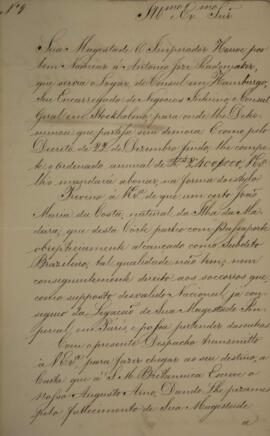 Nº 9
Illmo. e Exmo. Snr.
Sua Magestade O Imperador Houve por
bem Nomear a Antonio José Rademaker,
que servia o Logar de Consul em Hamburgo,
Seu Encarregado de Negocios Interino e Consul
Geral em Stockholm para onde lhe Deter-
minou que partisse sem demora. E como pelo
Decreto de 22 de Dezembro findo, lhe compe-
te o ordenado annual de Rs 2:400$000, V. Exa.
lho mandará abonar, na forma do estylo.
Previno a V. Exa. de que um certo João
Maria da Costa, natural da Ilha da Ma-
deira, que desta Côrte partio com Passaporte
obrepticiamente alcançado como Subdito
Brazileiro, tal qualidade não tem, nem
conseguintemente direito aos soccorros que
como supposto desvalido Nacional já con-
seguio da Legação de Sua Magestade Im-
perial, em Paris, e possa pretender das outras.
Com o presente Despacho transmitto
a V. Exa. para fazer chegar ao seu destino, a
Carta que a S. M. Britannica Escreve o
Nosso Augusto Amo, Dando-lhe pezames
pelo fallecimento de Sua Magestade
a